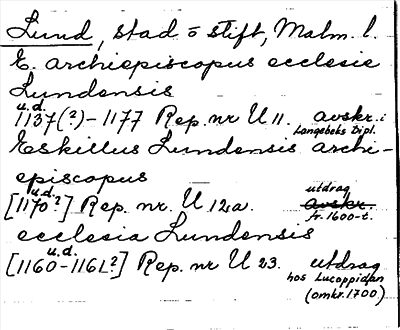 Lund, stad o stift, Malm. l.
E. archiepiscopus ecclesie
Lundensis
u.d.
1137(?)-1177 Rep. nr U 11. avskr. i
Langebeks Dipl.
Eskillus Lundensis archi-
episcopus
u.d. utdrag
[1170?] Rep. nr. U 12a. avskr.
fr. 1600-t.
ecclesia Lundensis
u.d.
[1160-1161?] Rep. nr U 23. utdrag
hos Lucoppidan
(omkr. 1700)